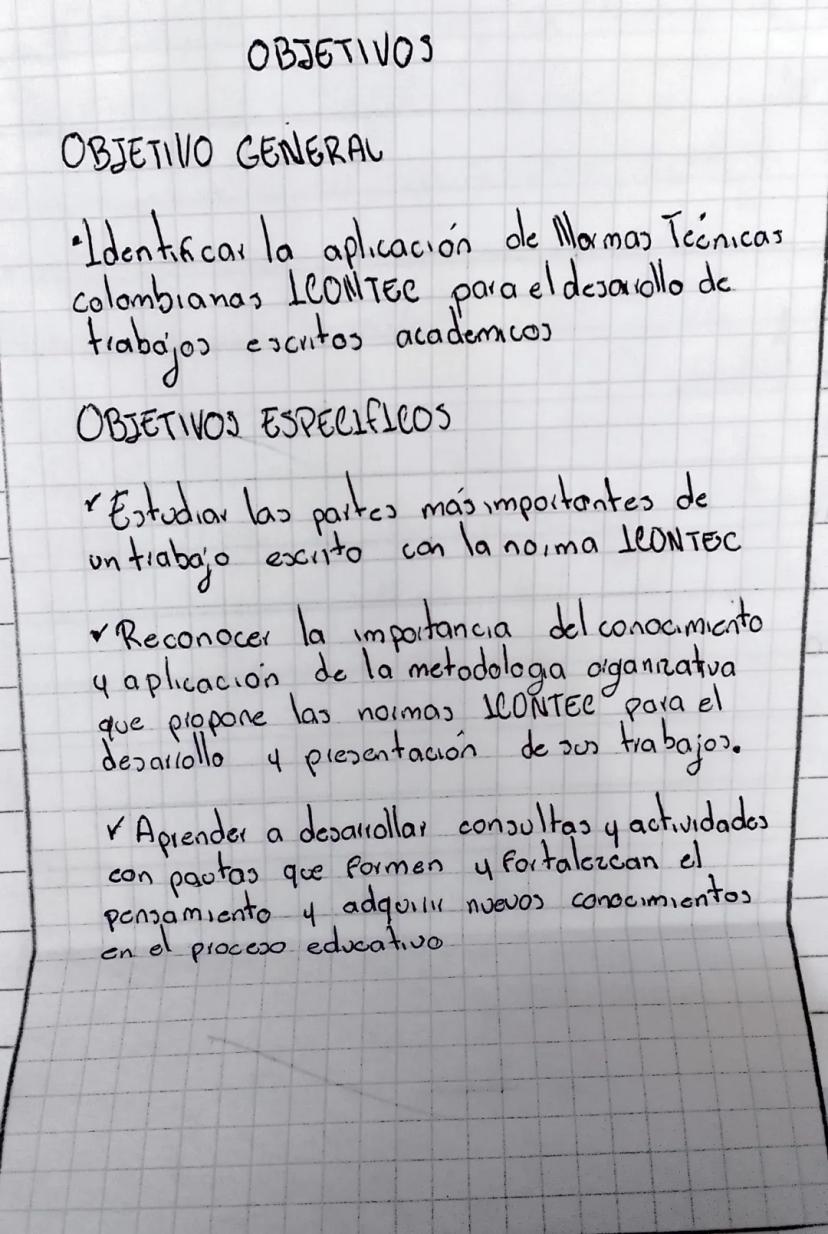 OBJETIVOS
OBJETIVO GENERAL
•Identificar la aplicación de Normas Técnicas
colombianas ICONTEC para el desarrollo de
trabajos escritos academicos
OBJETIVOS ESPECIFICOS
✓Estudiar las partes más importantes de
un trabajo escrito con la norma ICONTEC
✓Reconocer la importancia del conocimiento
y aplicación de la metodologia organizativa
que propone las normas ICONTEC para el
desarrollo y presentación de sus trabajos.
✓Aprender a desarrollar consultas y actividades
con pautas que formen y fortalezcan el
pensamiento y adquirir nuevos conocimientos
en el proceso educativo